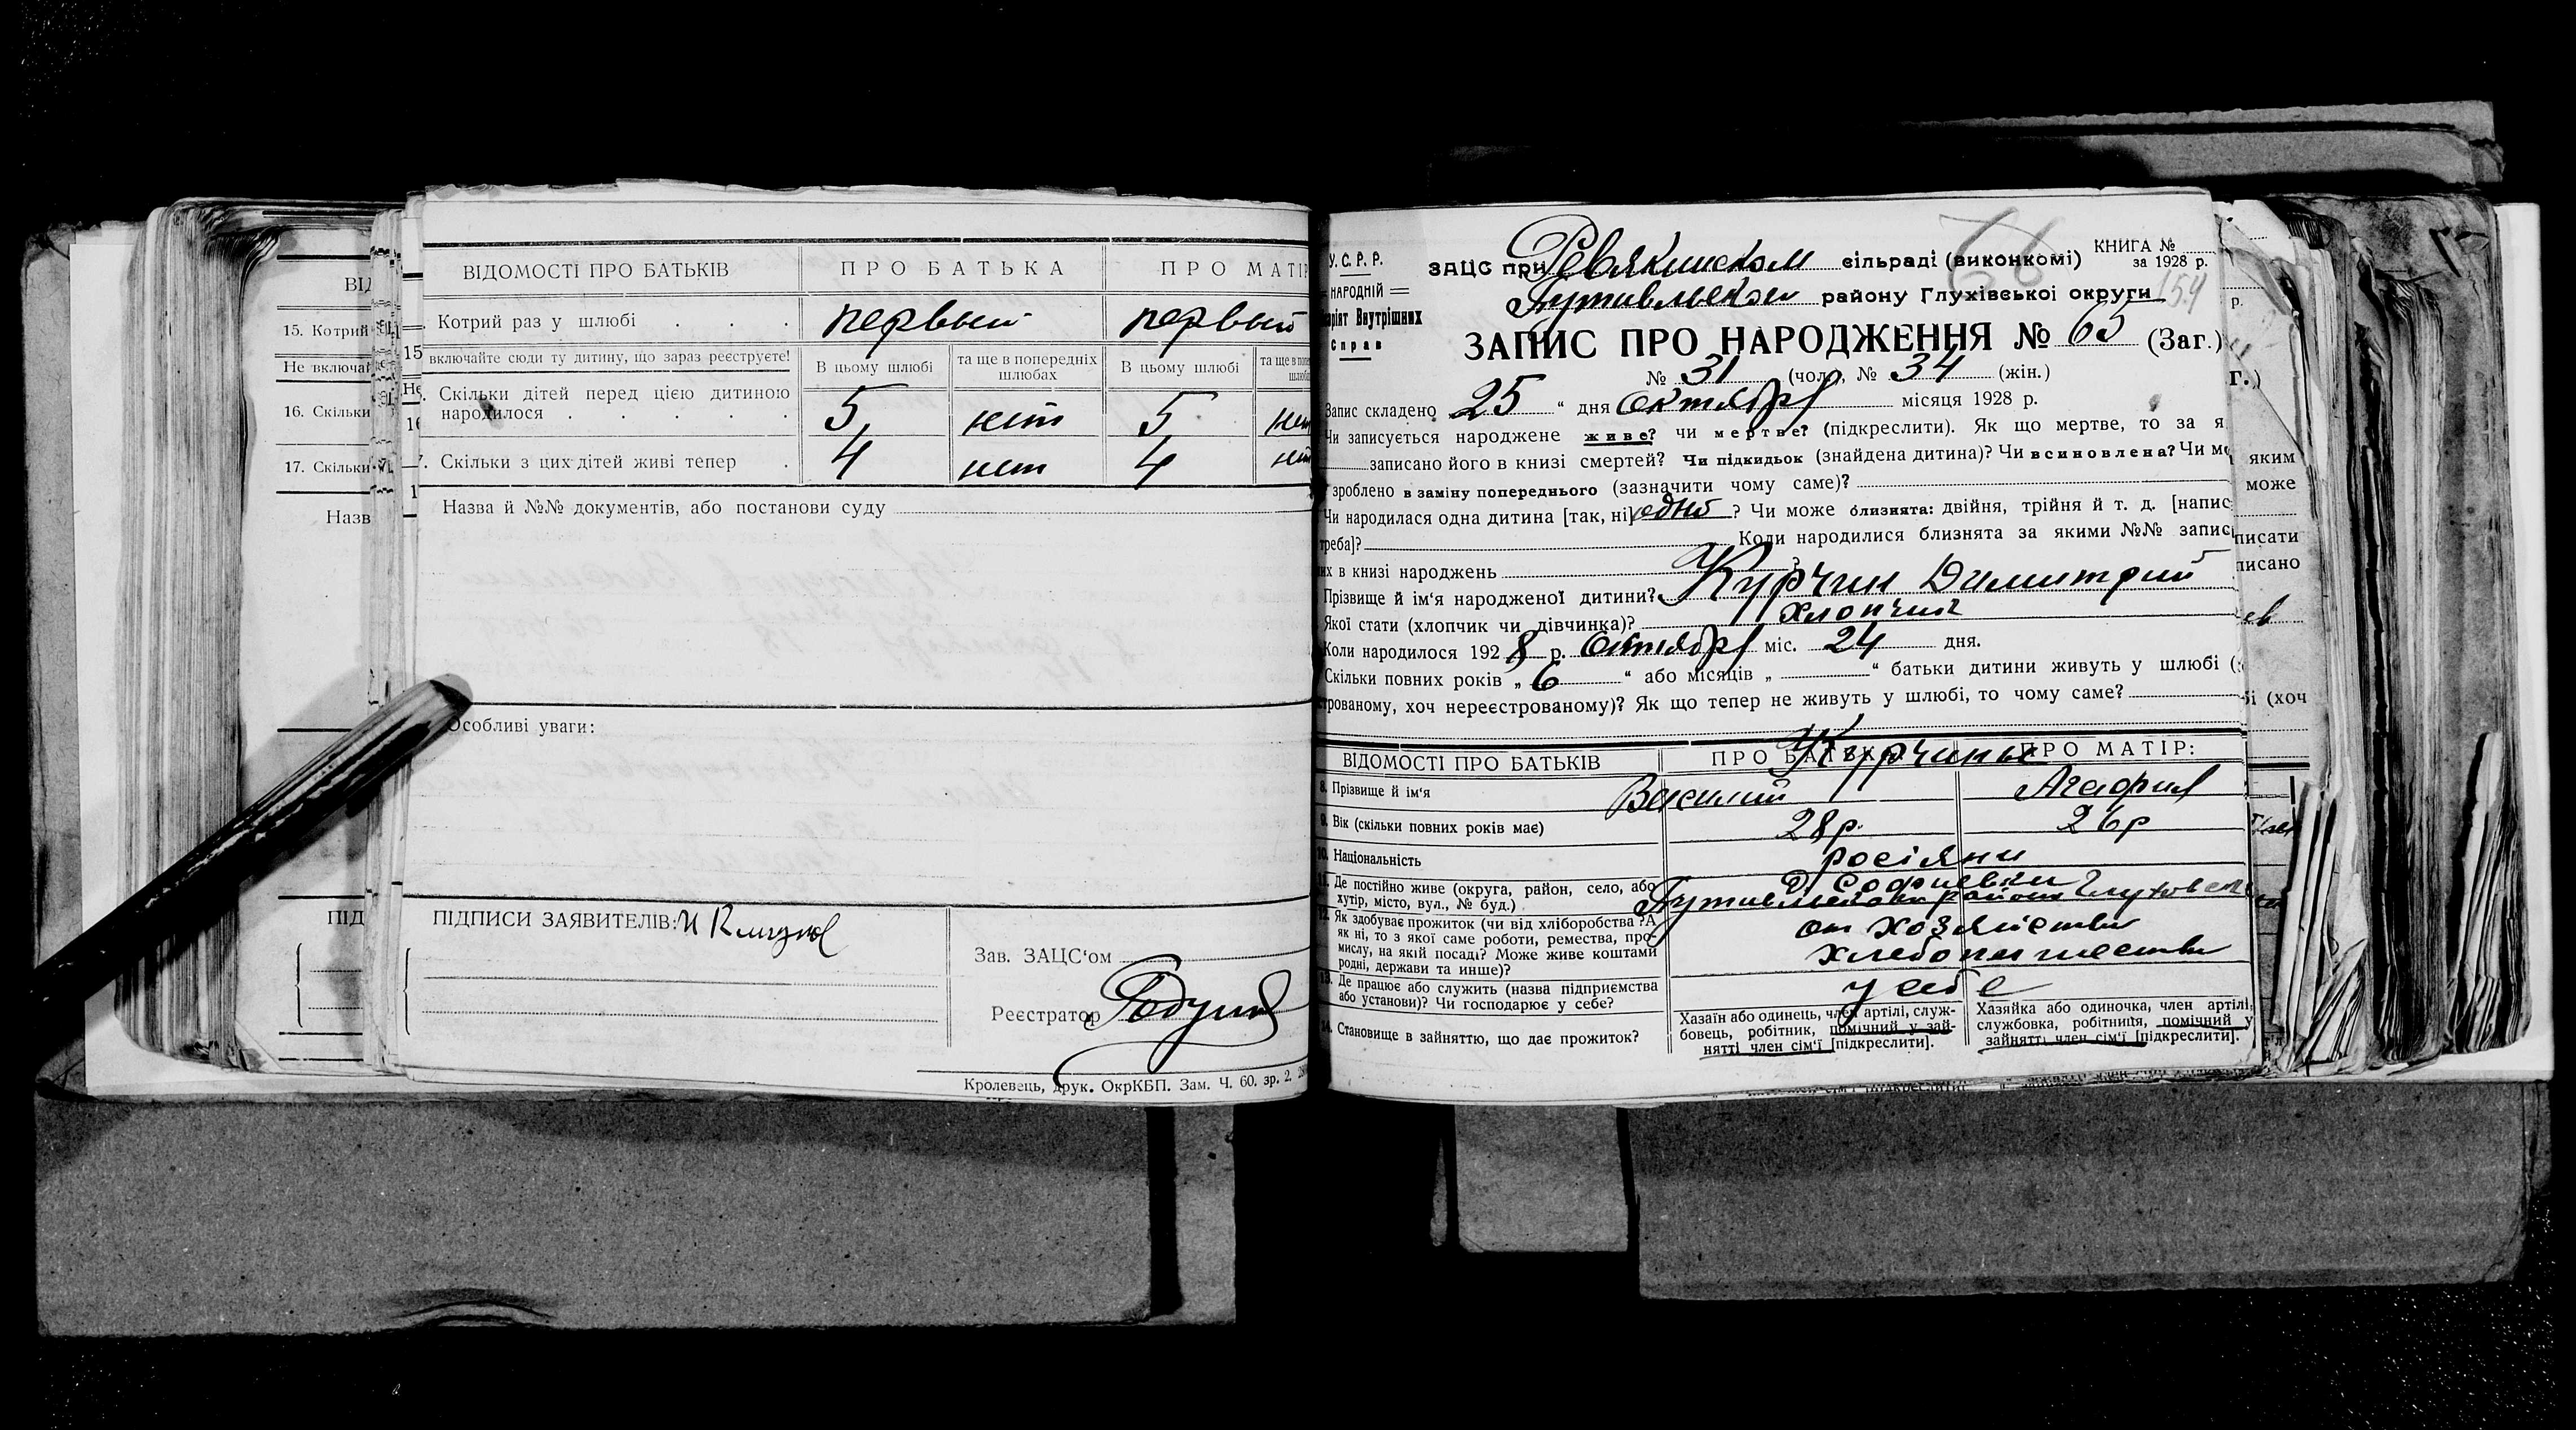 ВІДОМОСТІ ПРО БАТЬКІВ ПРО БАТЬКА ПРО МАТІР
Котрий раз у шлюбі первый первый
включайте сюди ту дитину, що зараз реєструєте! В цьому шлюбі та ще в попередніх шлюбах В цьому шлюбі
Скільки дітей перед цією дитиною
народилося 5 нет 5 нет
Скільки з цих дітей живі тепер 4 нет 4 нет
Назва й №№ документів, або постанови суду
Особливі уваги:
ПІДПИСИ ЗАЯВИТЕЛІВ:
Зав. ЗАЦС'ом
Реєстратор
Кролевець, друк. ОкрКБП. Зам. Ч. 60. зр. 2.
15. Котрий
Не включай
16. Скільки
17. Скільки
Назв
ПІД
У.С.Р.Р.
НАРОДНІЙ
Внутрішних
Справ
КНИГА №
за 1928 р.
ЗАЦС при Ревякинском сільраді (виконкомі)
56
Путивльском району Глухівської округи 154
ЗАПИС ПРО НАРОДЖЕННЯ № 65 (Заг.)
№ 31 (чол.), № 34 (жін.)
Запис складено 25 " дня Октября місяця 1928 р.
Чи записується народжене живе? чи мертве? (підкреслити). Як що мертве, то за я
записано його в книзі смертей? Чи підкидьок (знайдена дитина)? Чи всиновлена? Чи мо
зроблено в заміну попереднього (зазначити чому саме)?
Чи народилася одна дитина [так, ні] одно ? Чи може близнята: двійня, трійня й т. д. [напис
треба]? Коли народилися близнята за якими №№ запис
их в книзі народжень ?
Прізвище й ім'я народженої дитини? Курчин Димитрий
Якої стати (хлопчик чи дівчинка)? хлопчик
Коли народилося 1928 р. Октября міс. 24 дня.
Скільки повних років „ 6 " або місяців „ " батьки дитини живуть у шлюбі (
трованому, хоч нереєстрованому)? Як що тепер не живуть у шлюбі, то чому саме?
ВІДОМОСТІ ПРО БАТЬКІВ ПРО БАТЬКА ПРО МАТІР:
Курчины
8. Прізвище й ім'я Василий Агафия
9. Вік (скільки повних років має) 28 р. 26 р
10. Національність росіяни
11. Де постійно живе (округа, район, село, або
хутір, місто, вул., № буд.) д. Софиевки
Путивльского района Глуховск
12. Як здобуває прожиток (чи від хліборобства? А
як ні, то з якої саме роботи, ремества, про-
мислу, на якій посаді? Може живе коштами
родні, держави та инше)?
от хозяйства
хлебопашества
13. Де працює або служить (назва підприємства
або установи)? Чи господарює у себе? у себе
14. Становище в зайняттю, що дає прожиток?
Хазяїн або одинець, член артілі, служ-
бовець, робітник, помічний у зай-
нятті член сім'ї [підкреслити].
Хазяйка або одиночка, член артілі,
службовка, робітниця, помічний у
зайнятті член сім'ї [підкреслити].
яким
може
писати
писано
бі (хоч